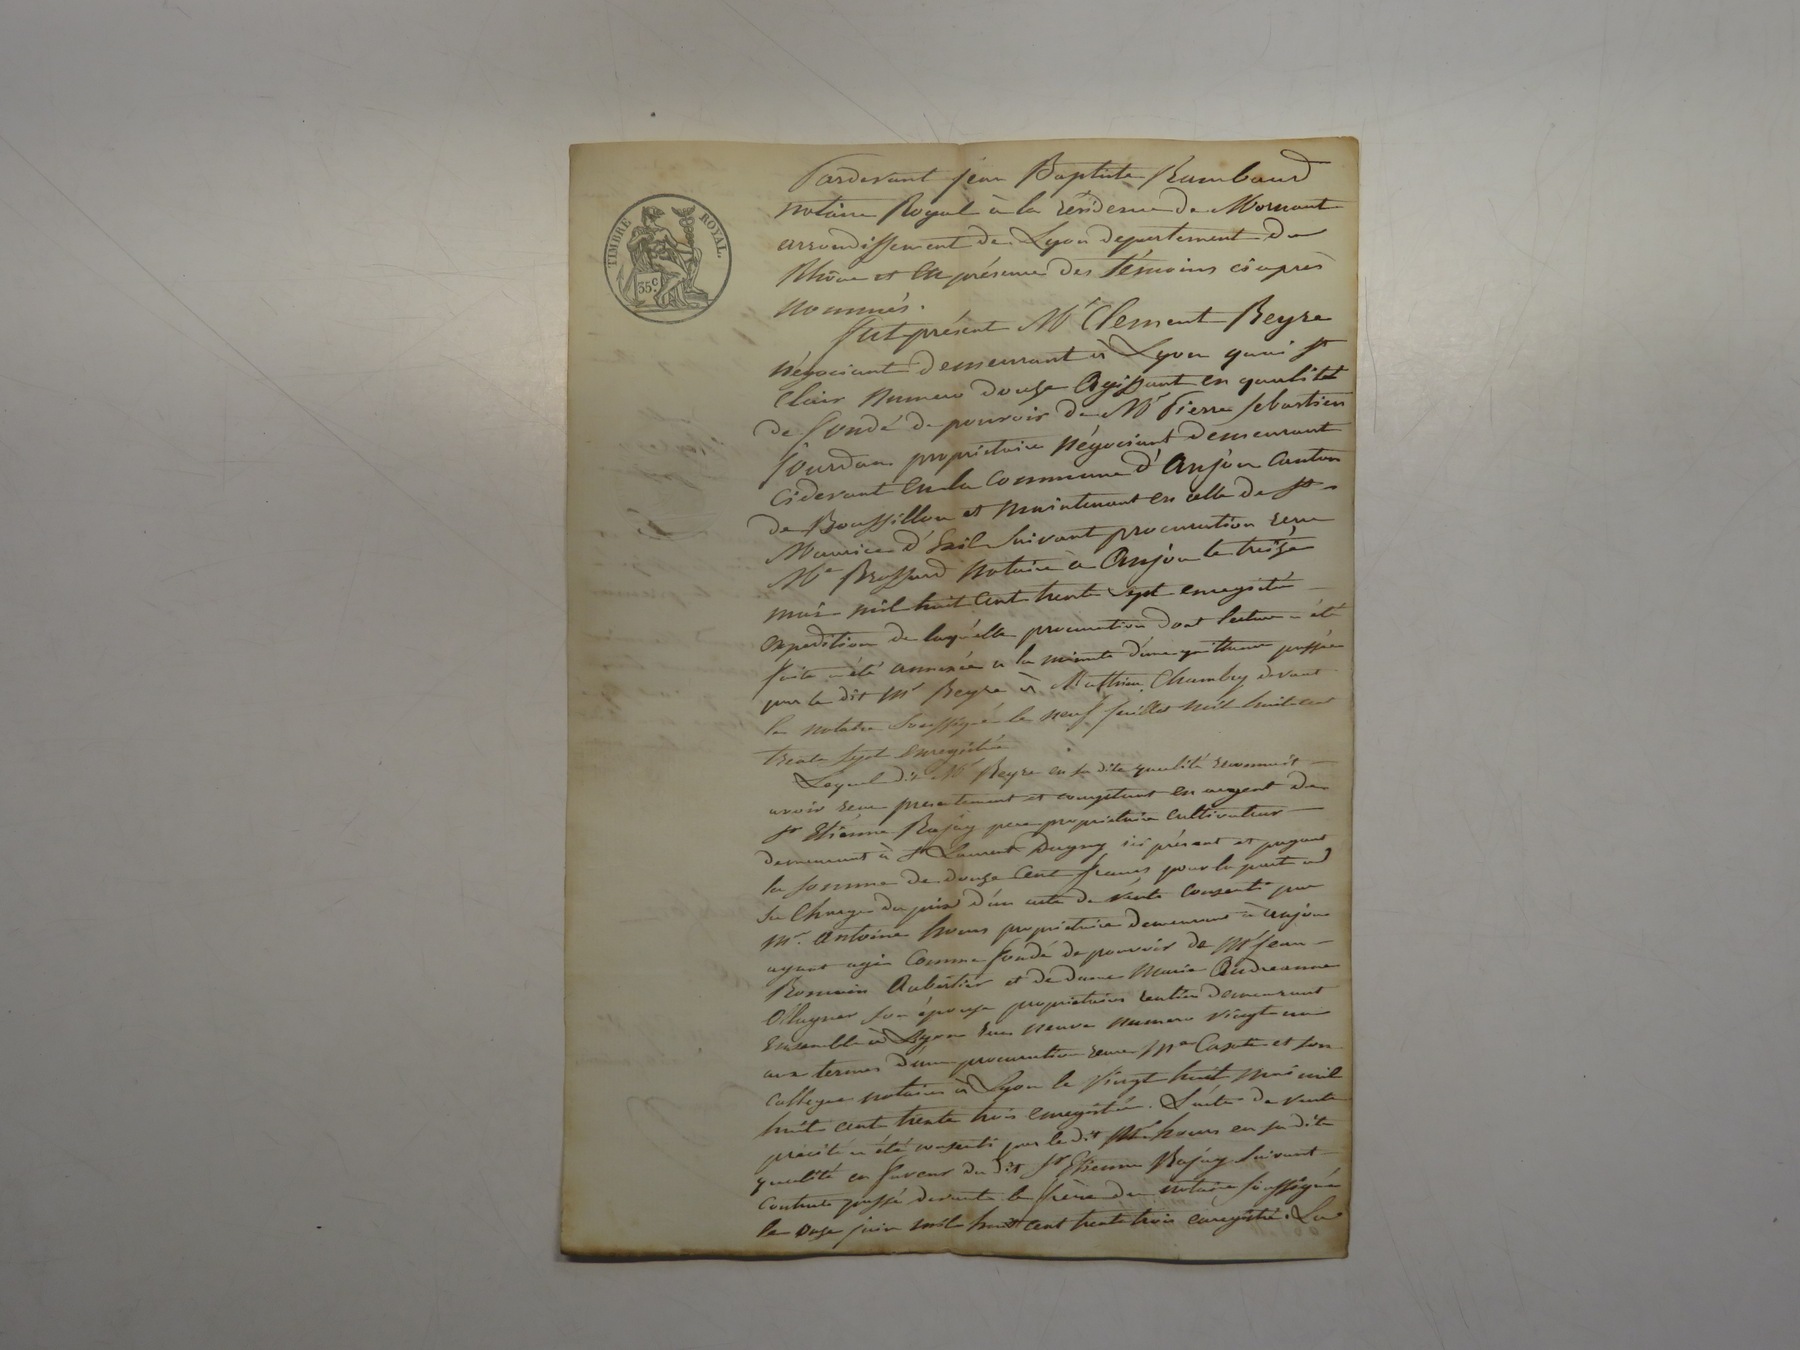 TIMBRE ROYAL.
35c
Pardevant jean Baptiste Rambaud
notaire Royal à la résidence de Mornant
arrondissement de Lyon departement du
Rhône et en présence des témoins ciaprès
nommés.
fut présent Mr Clement Reyre
négociant demeurant à Lyon quai St
Clair numero douze agissant en qualité
de fondé de pouvoir de Mr Pierre Sebastien
Jourdan propriétaire négociant demeurant
cidevant en la commune d'anjou canton
de Roussillon et maintenant en celle de St
Maurice d'Exil suivant procuration reçue
Me Brossard notaire à Anjou le treize
mai mil huit cent trente sept enregistré
expedition de laquelle procuration dont lecture a été
faite a été annexée a la minute d'une quittance passée
par le dit Mr Reyre à Mathieu Chambry devant
le notaire soussigné le neuf juillet mil huit cent
trente sept enregistrée
Lequel dit Mr Reyre en sa dite qualité reconnait
avoir reçu presentement et comptant en argent du
Sr Etienne père propriétaire cultivateur
demeurant à St Laurent Dagny ici présent et payant
la somme de douze cent francs pour la part à
sa charge du prix d'un acte de vente consenti par
Mr. Antoine hours propriétaire demeurant à anjou
ayant agi comme fondé de pouvoir de Mr jean
Romain Aubertier et de dame Marie
son épouse propriétaires rentiers demeurant
ensemble à Lyon rue neuve numero vingt un
aux termes d'une procuration reçue Me et son
collegue notaires à Lyon le vingt huit mai mil
huit cent trente trois enregistrée. L'acte de vente
précité a été consenti par le dit Mr hours en sa dite
qualité en faveur du dit Sr Etienne suivant
contrat passé devant le frère du notaire soussigné
le onze juin mil huit cent trente trois enregistré. La